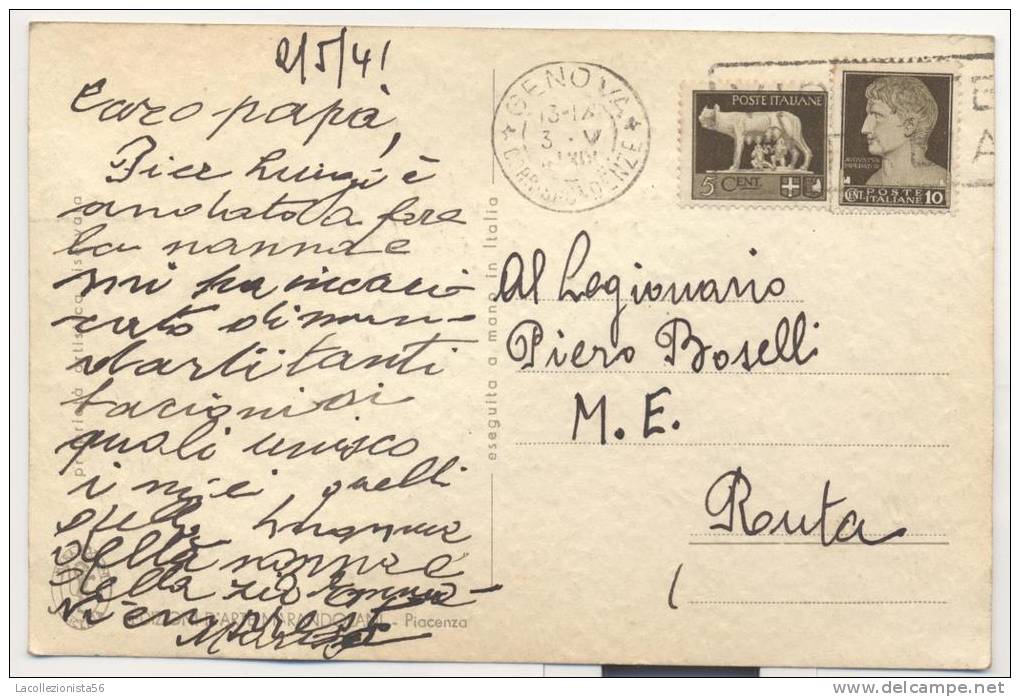 2/5/41
Caro papà,
Pier Luigi è
andato a fare
la nanna e
mi ha incari
cato di man-
darti tanti
bacioni ai
quali unisco
i miei, quelli
della mamma
della nonna e
della zia
GENOVA
13-14
3 · V
CORRISPONDENZE
POSTE ITALIANE
5 CENT.
CENT. POSTE ITALIANE 10
Al Legionario
Piero Boselli
M. E.
Ruta
proprietà artistica riservata
eseguita a mano in Italia
EDIZIONI D'ARTE MARANDOLANI - Piacenza
Lacollezionista56
delcampe.net